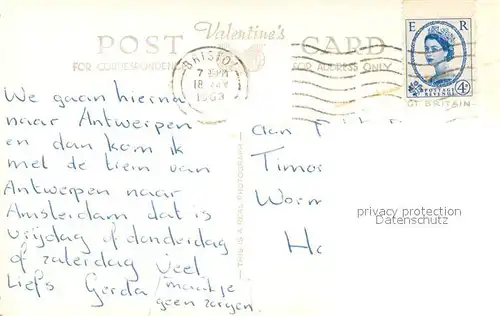 Valentine's
POST CARD
FOR CORRESPONDENCE FOR ADDRESS ONLY
BRISTOL
7
18
1963
E R
POSTAGE REVENUE 4D
GT. BRITAIN
We gaan hierna
naar Antwerpen
en dan kom ik
met de trein van
Antwerpen naar
Amsterdam dat is
vrijdag of donderdag
of zaterdag veel
Liefs Gerda (maak je
geen zorgen.
THIS IS A REAL PHOTOGRAPH
aan
Timor
Worm
Ho
privacy protection
Datenschutz